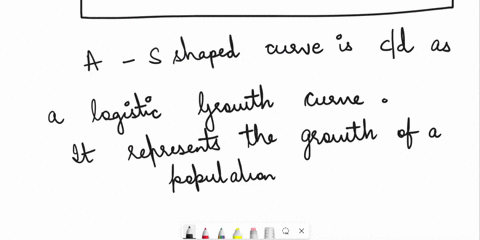 A - S shaped curve is c/d as
a logistic growth curve.
It represents the growth of a
population